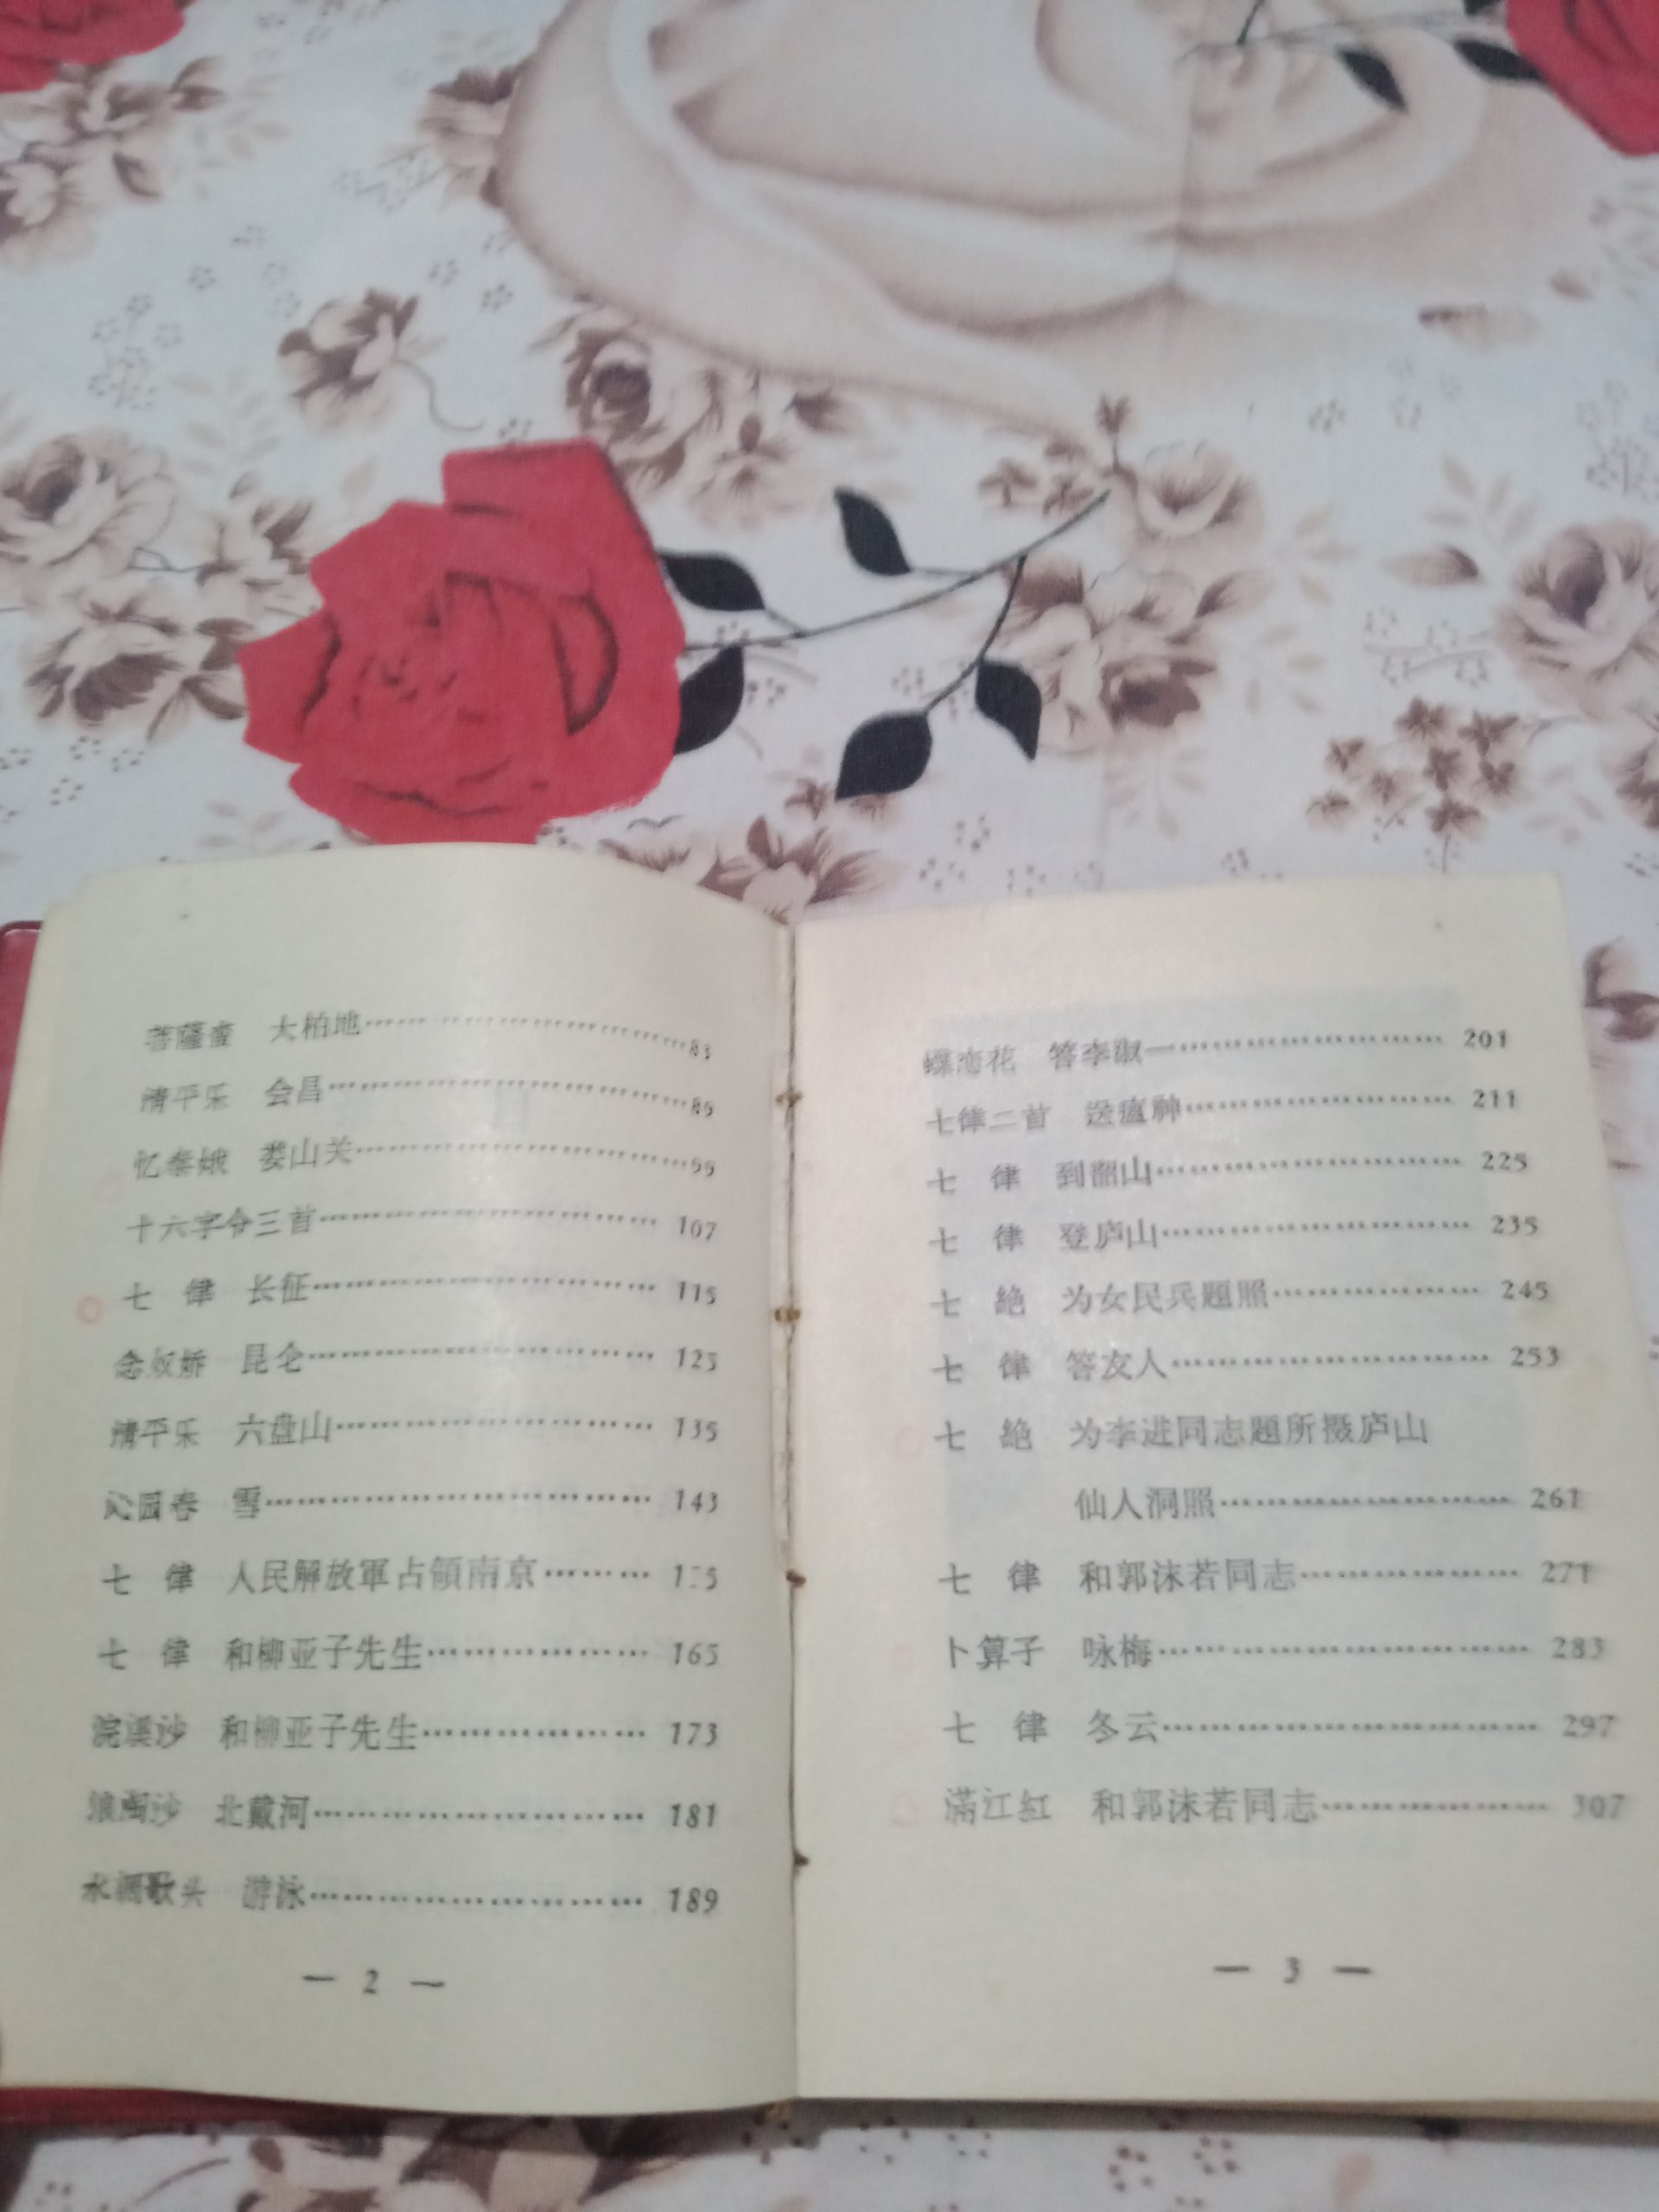 菩薩蛮　大柏地…………………………83
清平乐　会昌…………………………89
忆秦娥　娄山关…………………………99
十六字令三首…………………………107
七　律　长征…………………………115
念奴娇　昆仑…………………………125
清平乐　六盘山…………………………135
沁园春　雪…………………………143
七　律　人民解放軍占領南京………
七　律　和柳亚子先生………………165
浣溪沙　和柳亚子先生………………173
浪淘沙　北戴河………………………181
水調歌头　游泳………………………189
— 2 —
蝶恋花　答李淑一……………………201
七律二首　送瘟神……………………211
七　律　到韶山………………………225
七　律　登庐山………………………235
七　絕　为女民兵題照………………245
七　律　答友人………………………253
七　絕　为李进同志題所摄庐山
仙人洞照……………………261
七　律　和郭沫若同志………………271
卜算子　咏梅…………………………283
七　律　冬云…………………………297
滿江紅　和郭沫若同志………………307
— 3 —